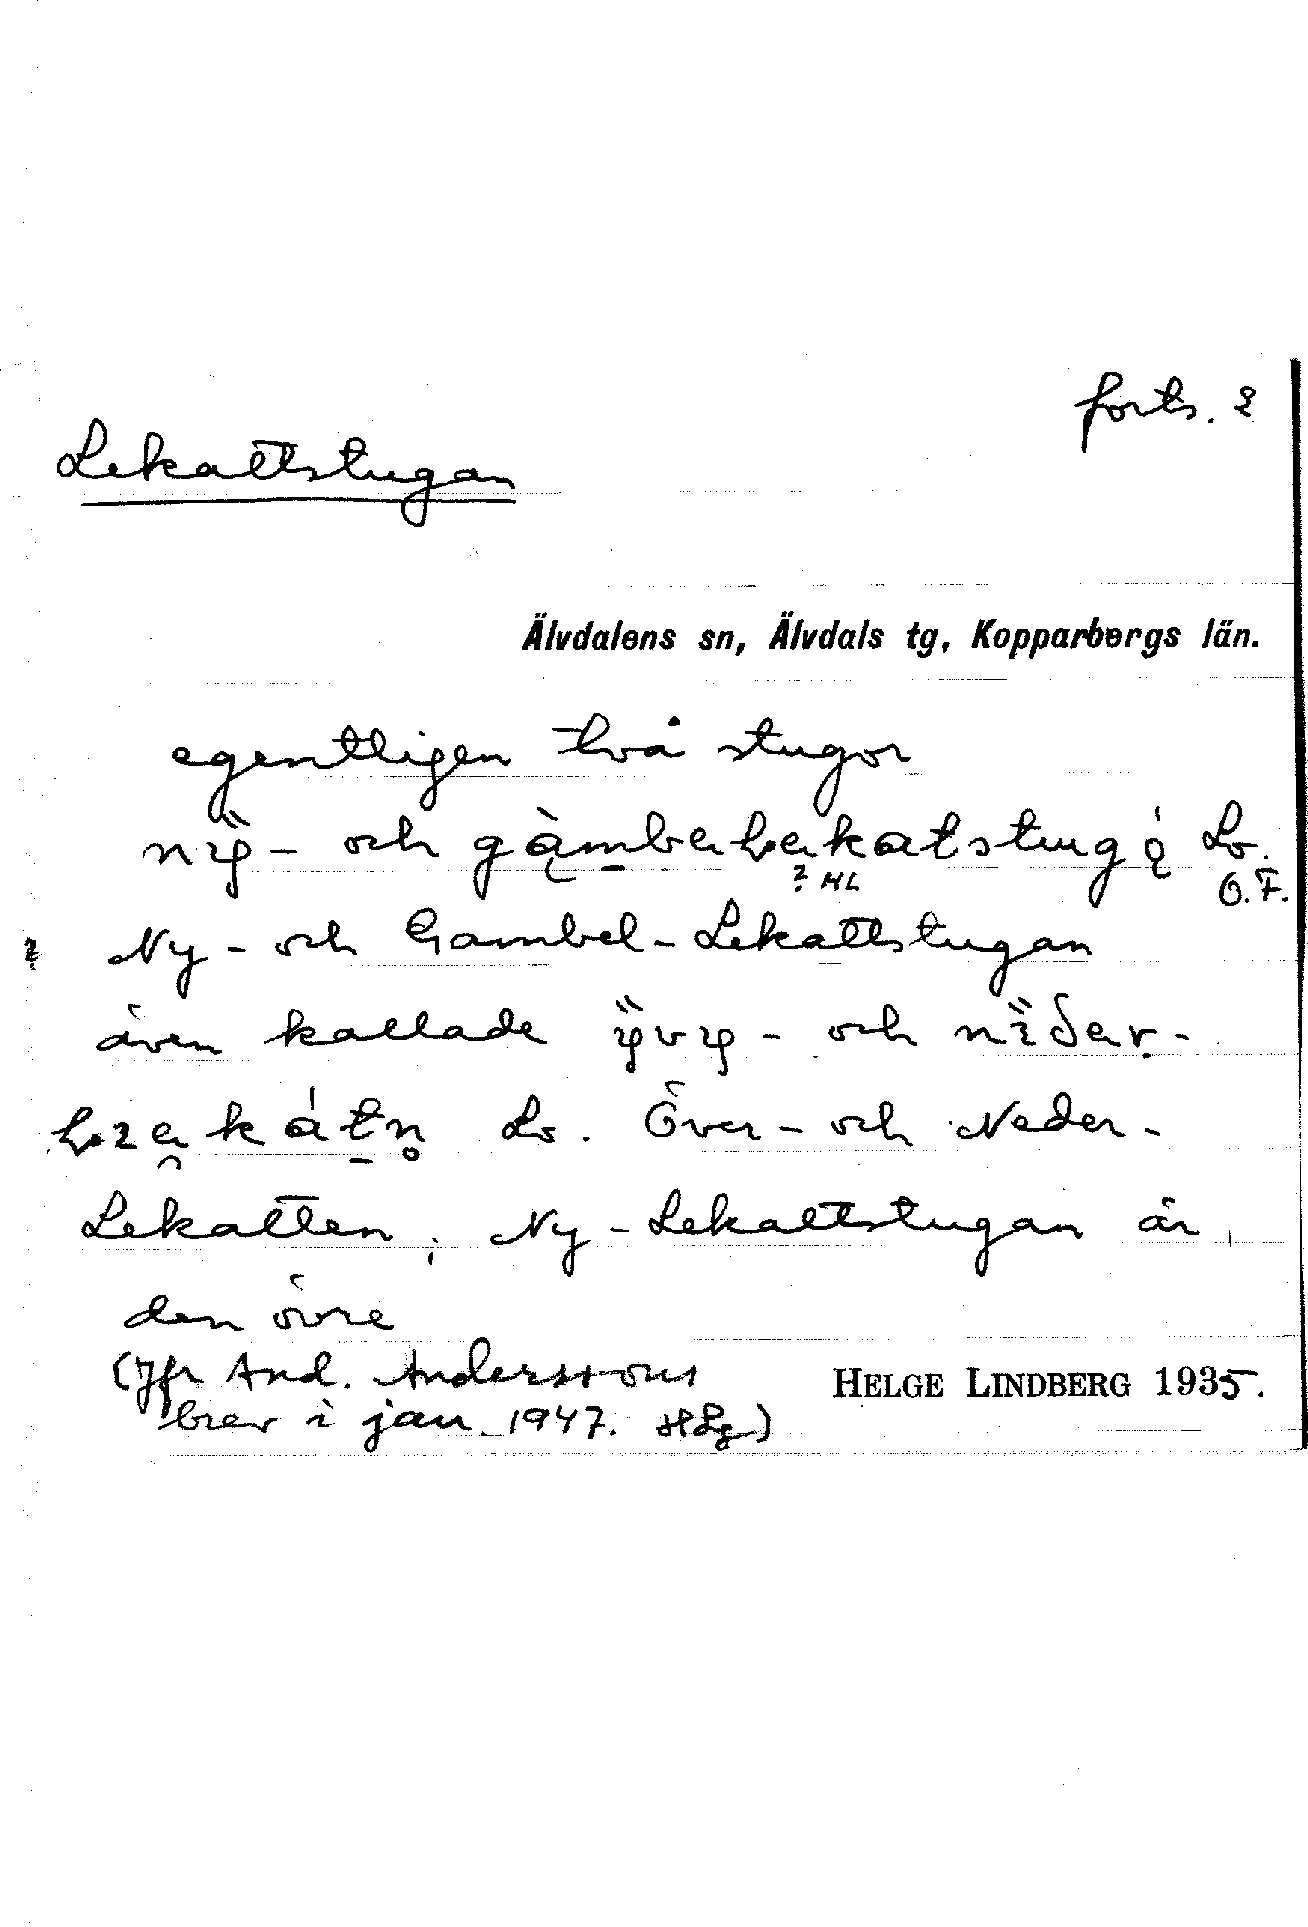 forts. 2
Lekattstugan
Älvdalens sn, Älvdals tg, Kopparbergs län.
egentligen två stugor
- och Lo.
? HL O.F.
? Ny - och Gambel - Lekattstugan
även kallade - och
Lo. Över - och Neder -
Lekatten; Ny - Lekattstugan är
den övre
(Jfr And. Anderssons
HELGE LINDBERG 1935.
brev i jan. 1947. HLg)